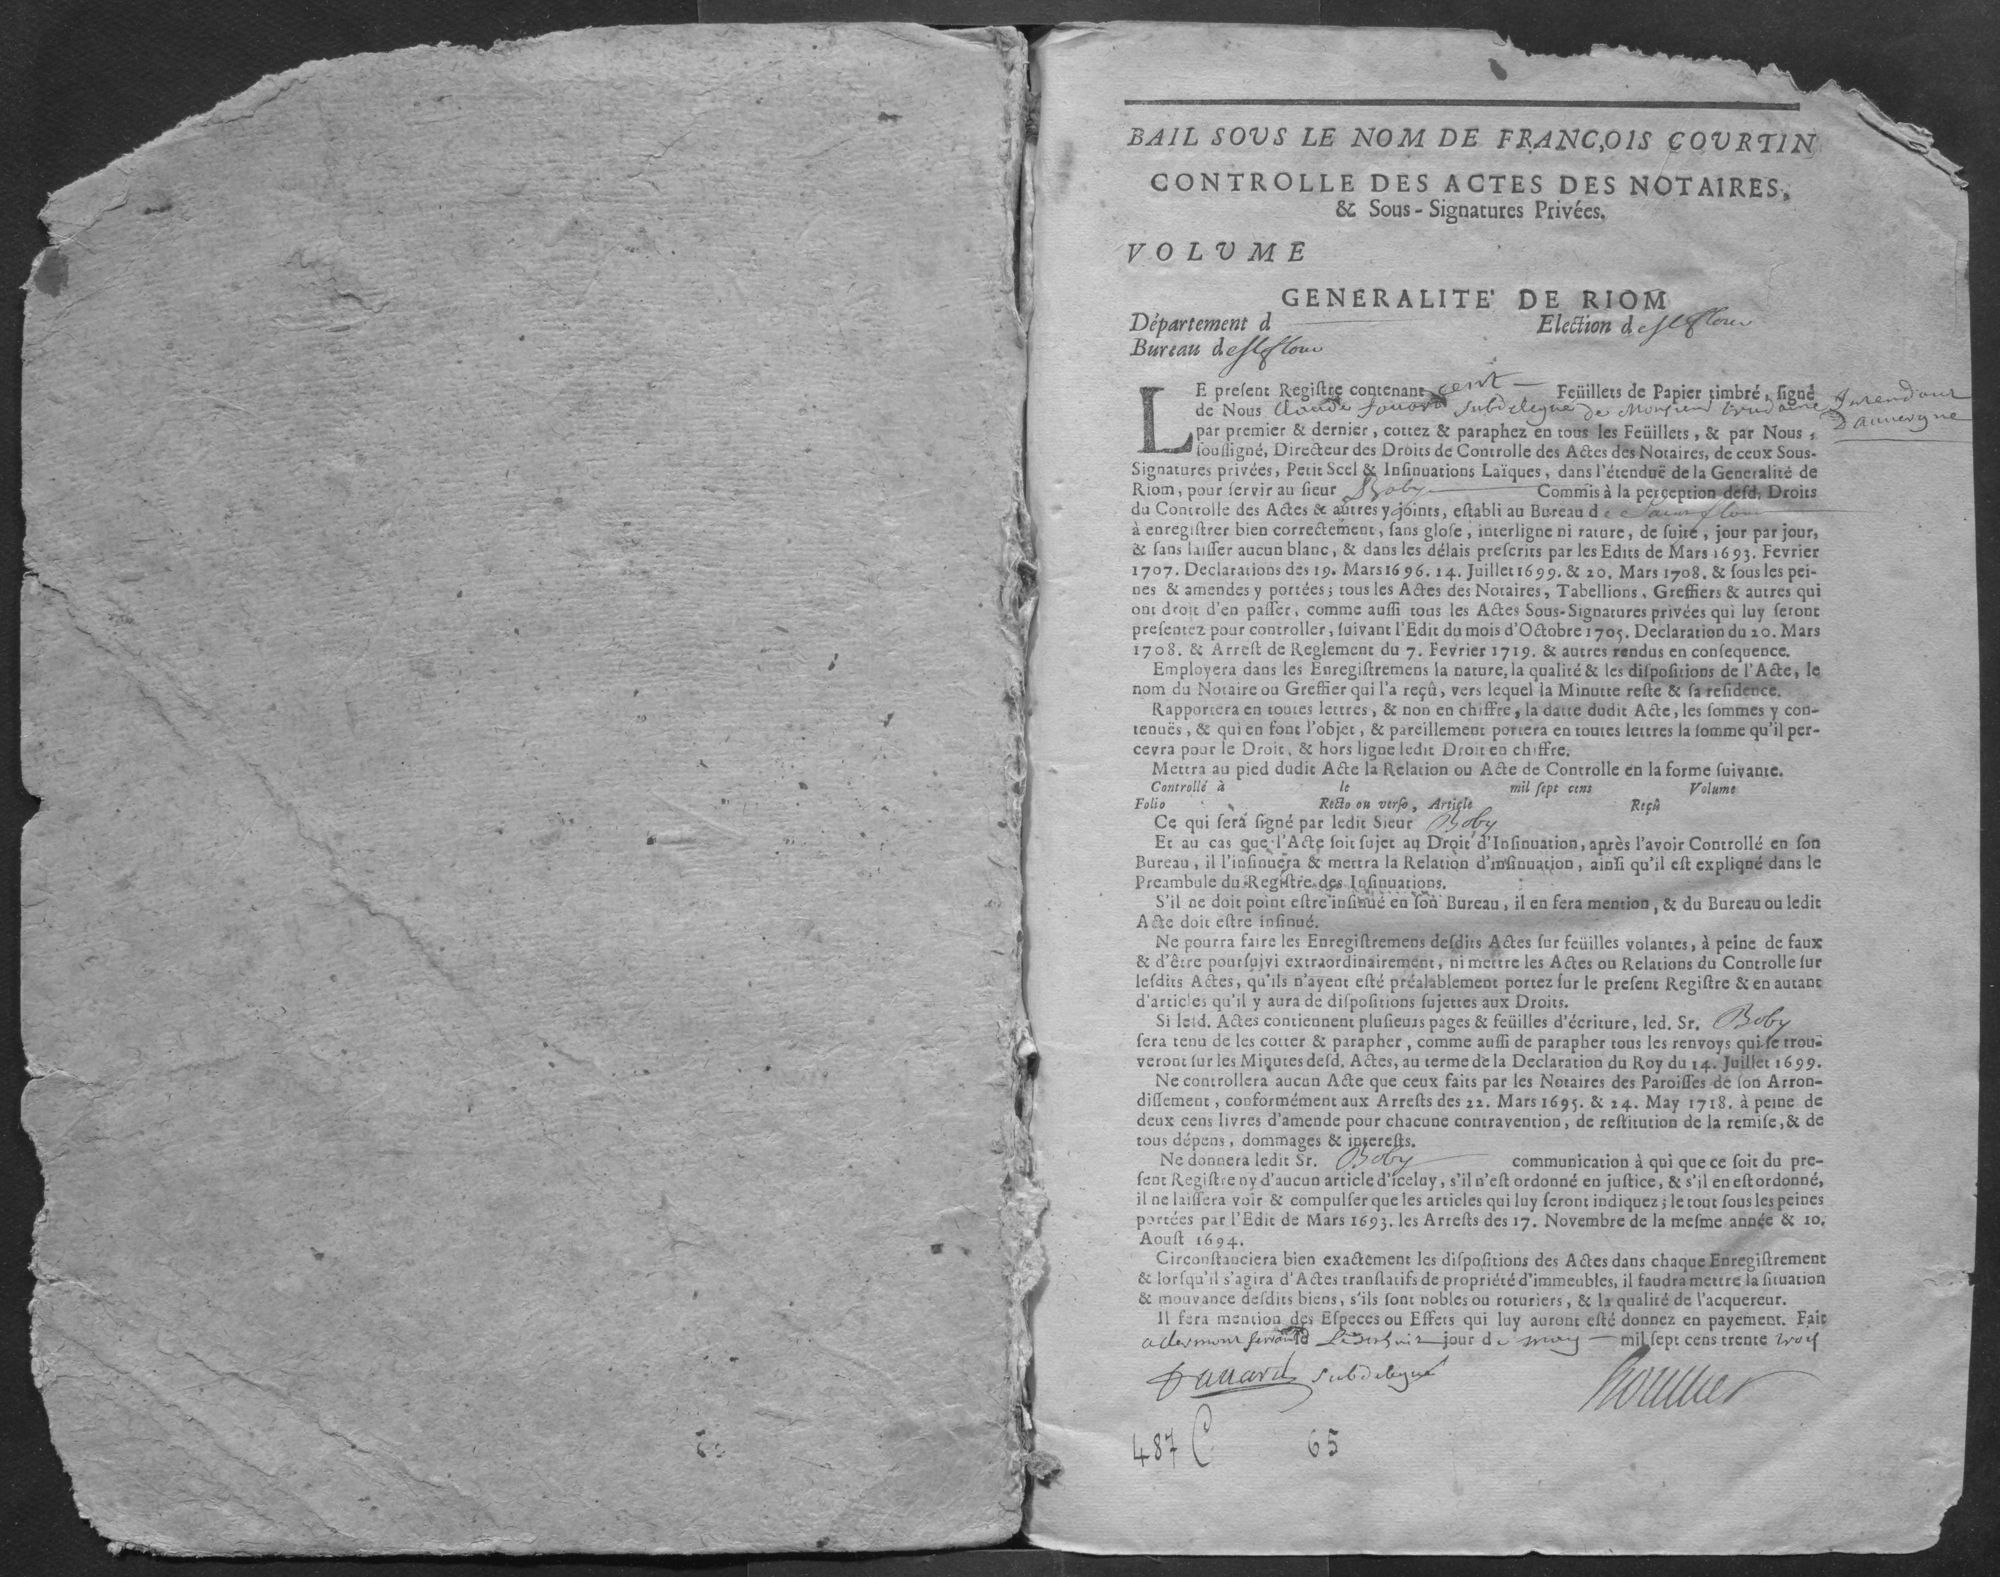 BAIL SOUS LE NOM DE FRANC,OIS COURTIN
CONTROLLE DES ACTES DES NOTAIRES,
& Sous-Signatures Privées.
VOLUME
GENERALITE' DE RIOM
Département d Election de st flour
Bureau de st flour
LE present Registre contenant cent Feüillets de Papier timbré, signé
de Nous Claude subdelegué de Monsieur Trudaine Intendant
d'auvergne
par premier & dernier, cottez & paraphez en tous les Feüillets, & par Nous,
soussigné, Directeur des Droits de Controlle des Actes des Notaires, de ceux Sous-
Signatures privées, Petit Scel & Insinuations Laïques, dans l'étenduë de la Generalité de
Riom, pour servir au sieur Boby Commis à la perception desd. Droits
du Controlle des Actes & autres y joints, establi au Bureau de Saint flour
à enregistrer bien correctement, sans glose, interligne ni rature, de suite, jour par jour,
& sans laisser aucun blanc, & dans les délais prescrits par les Edits de Mars 1693. Fevrier
1707. Declarations des 19. Mars 1696. 14. Juillet 1699. & 20. Mars 1708. & sous les pei-
nes & amendes y portées; tous les Actes des Notaires, Tabellions, Greffiers & autres qui
ont droit d'en passer, comme aussi tous les Actes Sous-Signatures privées qui luy seront
presentez pour controller, suivant l'Edit du mois d'Octobre 1705. Declaration du 20. Mars
1708. & Arrest de Reglement du 7. Fevrier 1719. & autres rendus en consequence.
Employera dans les Enregistremens la nature, la qualité & les dispositions de l'Acte, le
nom du Notaire ou Greffier qui l'a reçû, vers lequel la Minutte reste & sa residence.
Rapportera en toutes lettres, & non en chiffre, la datte dudit Acte, les sommes y con-
tenuës, & qui en font l'objet, & pareillement portera en toutes lettres la somme qu'il per-
cevra pour le Droit, & hors ligne ledit Droit en chiffre.
Mettra au pied dudit Acte la Relation ou Acte de Controlle en la forme suivante.
Controllé à le mil sept cens Volume
Folio Recto ou verso, Article Reçû
Ce qui sera signé par ledit Sieur Boby
Et au cas que l'Acte soit sujet au Droit d'Insinuation, après l'avoir Controllé en son
Bureau, il l'insinuera & mettra la Relation d'insinuation, ainsi qu'il est expliqué dans le
Preambule du Registre des Insinuations.
S'il ne doit point estre insinué en son Bureau, il en fera mention, & du Bureau ou ledit
Acte doit estre insinué.
Ne pourra faire les Enregistremens desdits Actes sur feüilles volantes, à peine de faux
& d'être poursuivi extraordinairement, ni mettre les Actes ou Relations du Controlle sur
lesdits Actes, qu'ils n'ayent esté préalablement portez sur le present Registre & en autant
d'articles qu'il y aura de dispositions sujettes aux Droits.
Si lesd. Actes contiennent plusieurs pages & feüilles d'écriture, led. Sr. Boby
sera tenu de les cotter & parapher, comme aussi de parapher tous les renvoys qui se trou-
veront sur les Minutes desd. Actes, au terme de la Declaration du Roy du 14. Juillet 1699.
Ne controllera aucun Acte que ceux faits par les Notaires des Paroisses de son Arron-
dissement, conformément aux Arrests des 22. Mars 1695. & 24. May 1718. à peine de
deux cens livres d'amende pour chacune contravention, de restitution de la remise, & de
tous dépens, dommages & interests.
Ne donnera ledit Sr. Boby communication à qui que ce soit du pre-
sent Registre ny d'aucun article d'iceluy, s'il n'est ordonné en justice, & s'il en est ordonné,
il ne laissera voir & compulser que les articles qui luy seront indiquez; le tout sous les peines
portées par l'Edit de Mars 1693. les Arrests des 17. Novembre de la mesme année & 10.
Aoust 1694.
Circonstanciera bien exactement les dispositions des Actes dans chaque Enregistrement
& lorsqu'il s'agira d'Actes translatifs de propriété d'immeubles, il faudra mettre la situation
& mouvance desdits biens, s'ils sont nobles ou roturiers, & la qualité de l'acquereur.
Il fera mention des Especes ou Effets qui luy auront esté donnez en payement. Fait
a clermont ferrand jour de may mil sept cens trente trois
subdelegué
487 C 65